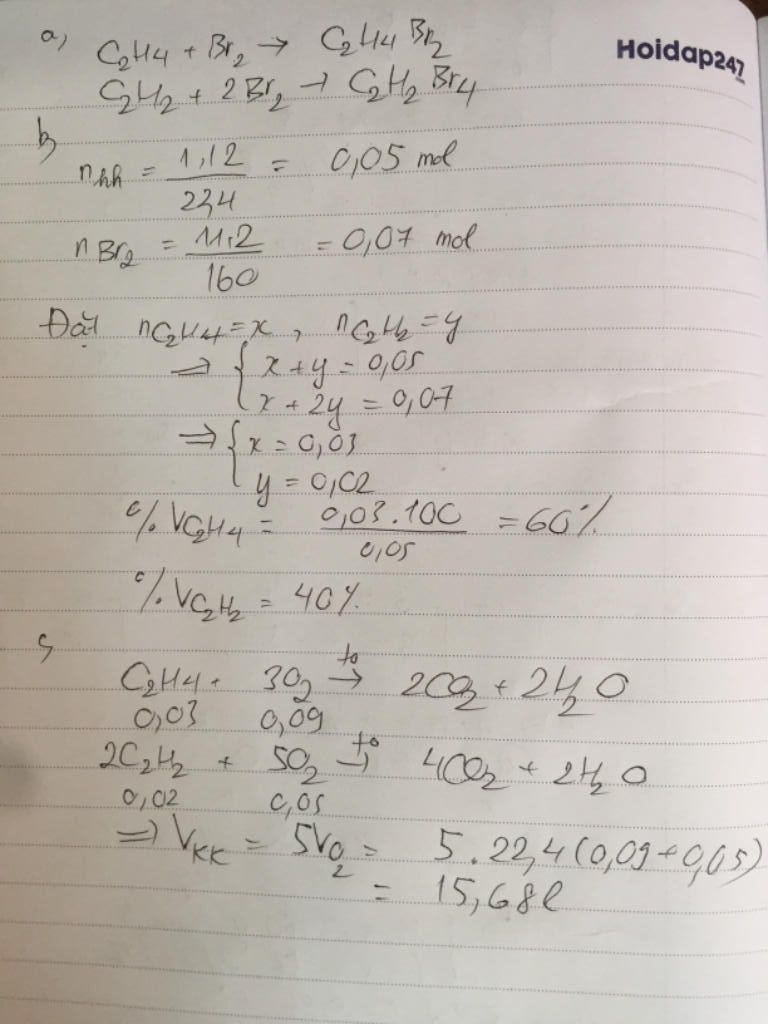 Hoidap247
.com
a, C₂H₄ + Br₂ → C₂H₄Br₂
C₂H₂ + 2Br₂ → C₂H₂Br₄
b,
nhh = 1,12/22,4 = 0,05 mol
nBr₂ = 11,2/160 = 0,07 mol
Đặt nC₂H₄ = x, nC₂H₂ = y
=> { x + y = 0,05
x + 2y = 0,07
=> { x = 0,03
y = 0,02
%VC₂H₄ = 0,03.100/0,05 = 60%
%VC₂H₂ = 40%.
c,
C₂H₄ + 3O₂ →(t°) 2CO₂ + 2H₂O
0,03 0,09
2C₂H₂ + 5O₂ →(t°) 4CO₂ + 2H₂O
0,02 0,05
=> VKK = 5VO₂ = 5.22,4(0,09+0,05)
= 15,68l